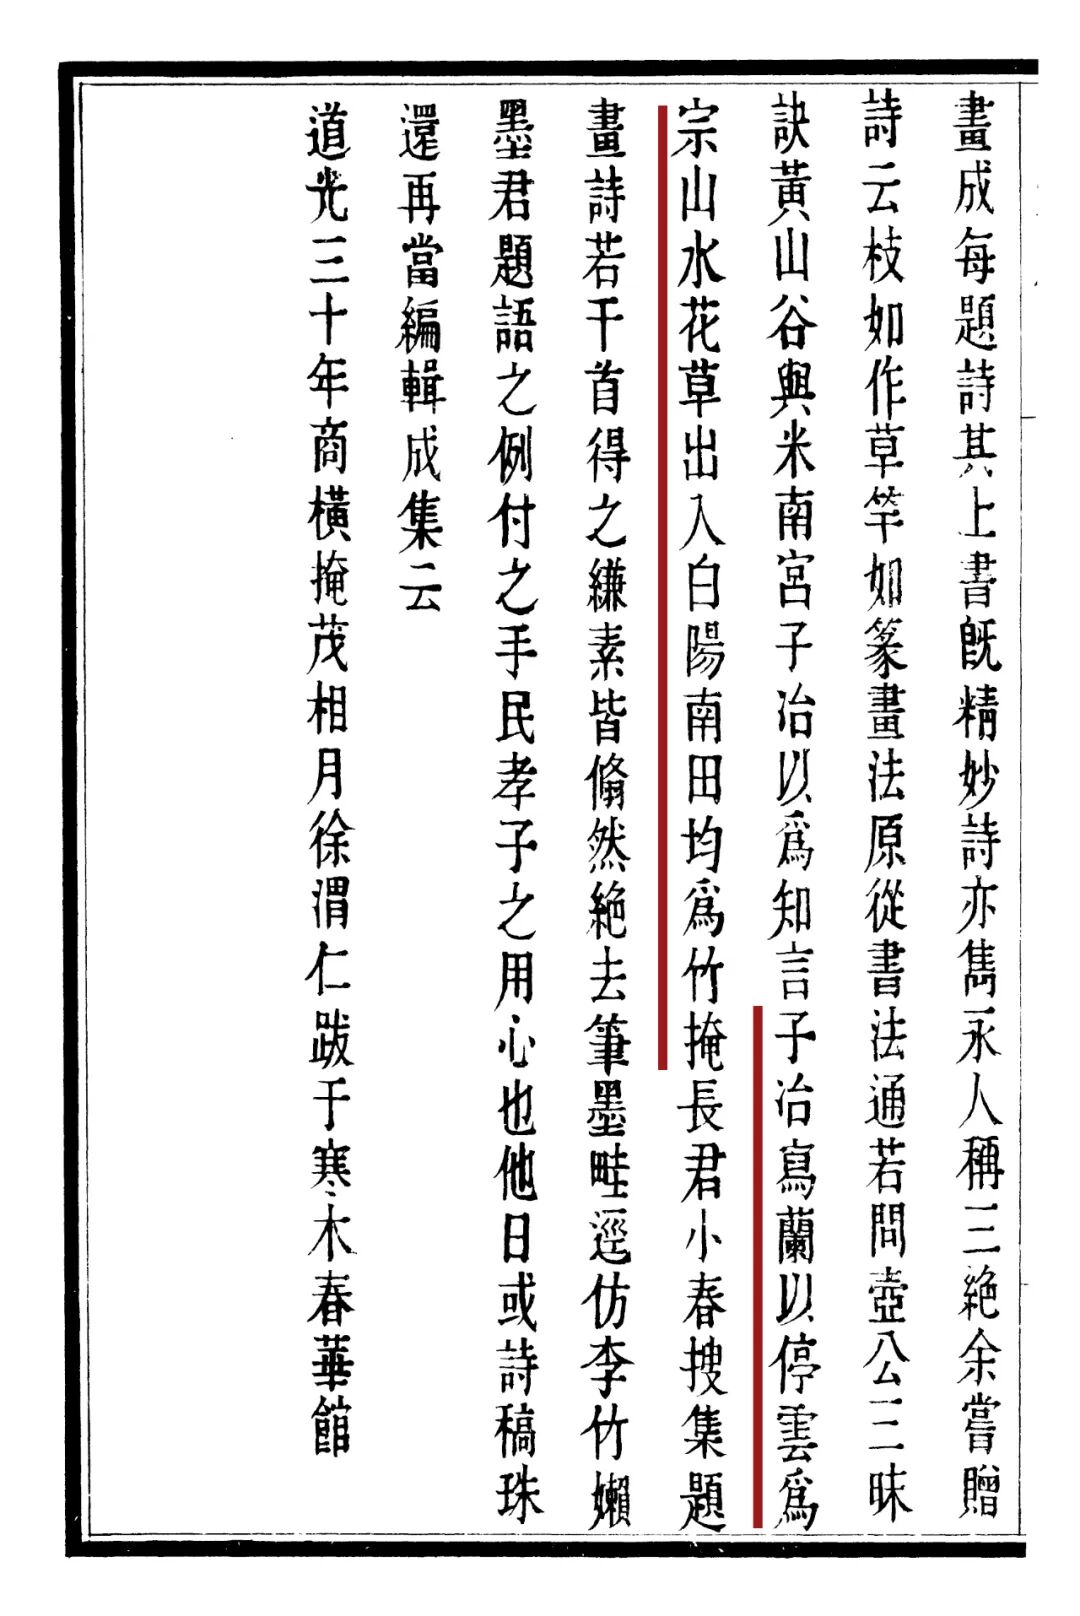 畫成每題詩其上書旣精妙詩亦雋永人稱三絶余嘗贈
詩云枝如作草竿如篆畫法原從書法通若問壺公三昧
訣黃山谷與米南宮子冶以爲知言子冶寫蘭以停雲爲
宗山水花草出入白陽南田均爲竹掩長君小春搜集題
畫詩若干首得之縑素皆翛然絶去筆墨畦逕仿李竹嬾
墨君題語之例付之手民孝子之用心也他日或詩稿珠
還再當編輯成集云
道光三十年商橫掩茂相月徐渭仁跋于寒木春華館